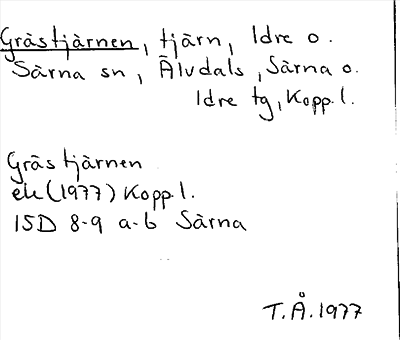 Grästjärnen, tjärn, Idre o.
Särna sn, Älvdals, Särna o.
Idre tg, Kopp.l.
Grästjärnen
ek (1977) Kopp.l.
15D 8-9 a-b Särna
T.Å.1977